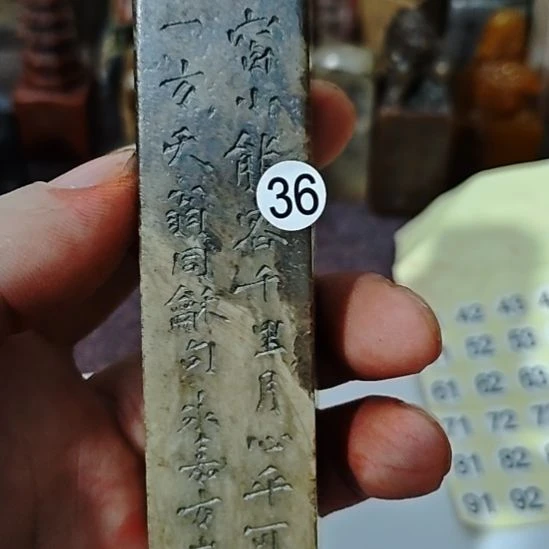 窗小能容千里月心平
一方天翁同龢句朱嘉方
36
42 43
52 53
61 62 63
71 72
81 82
91 92